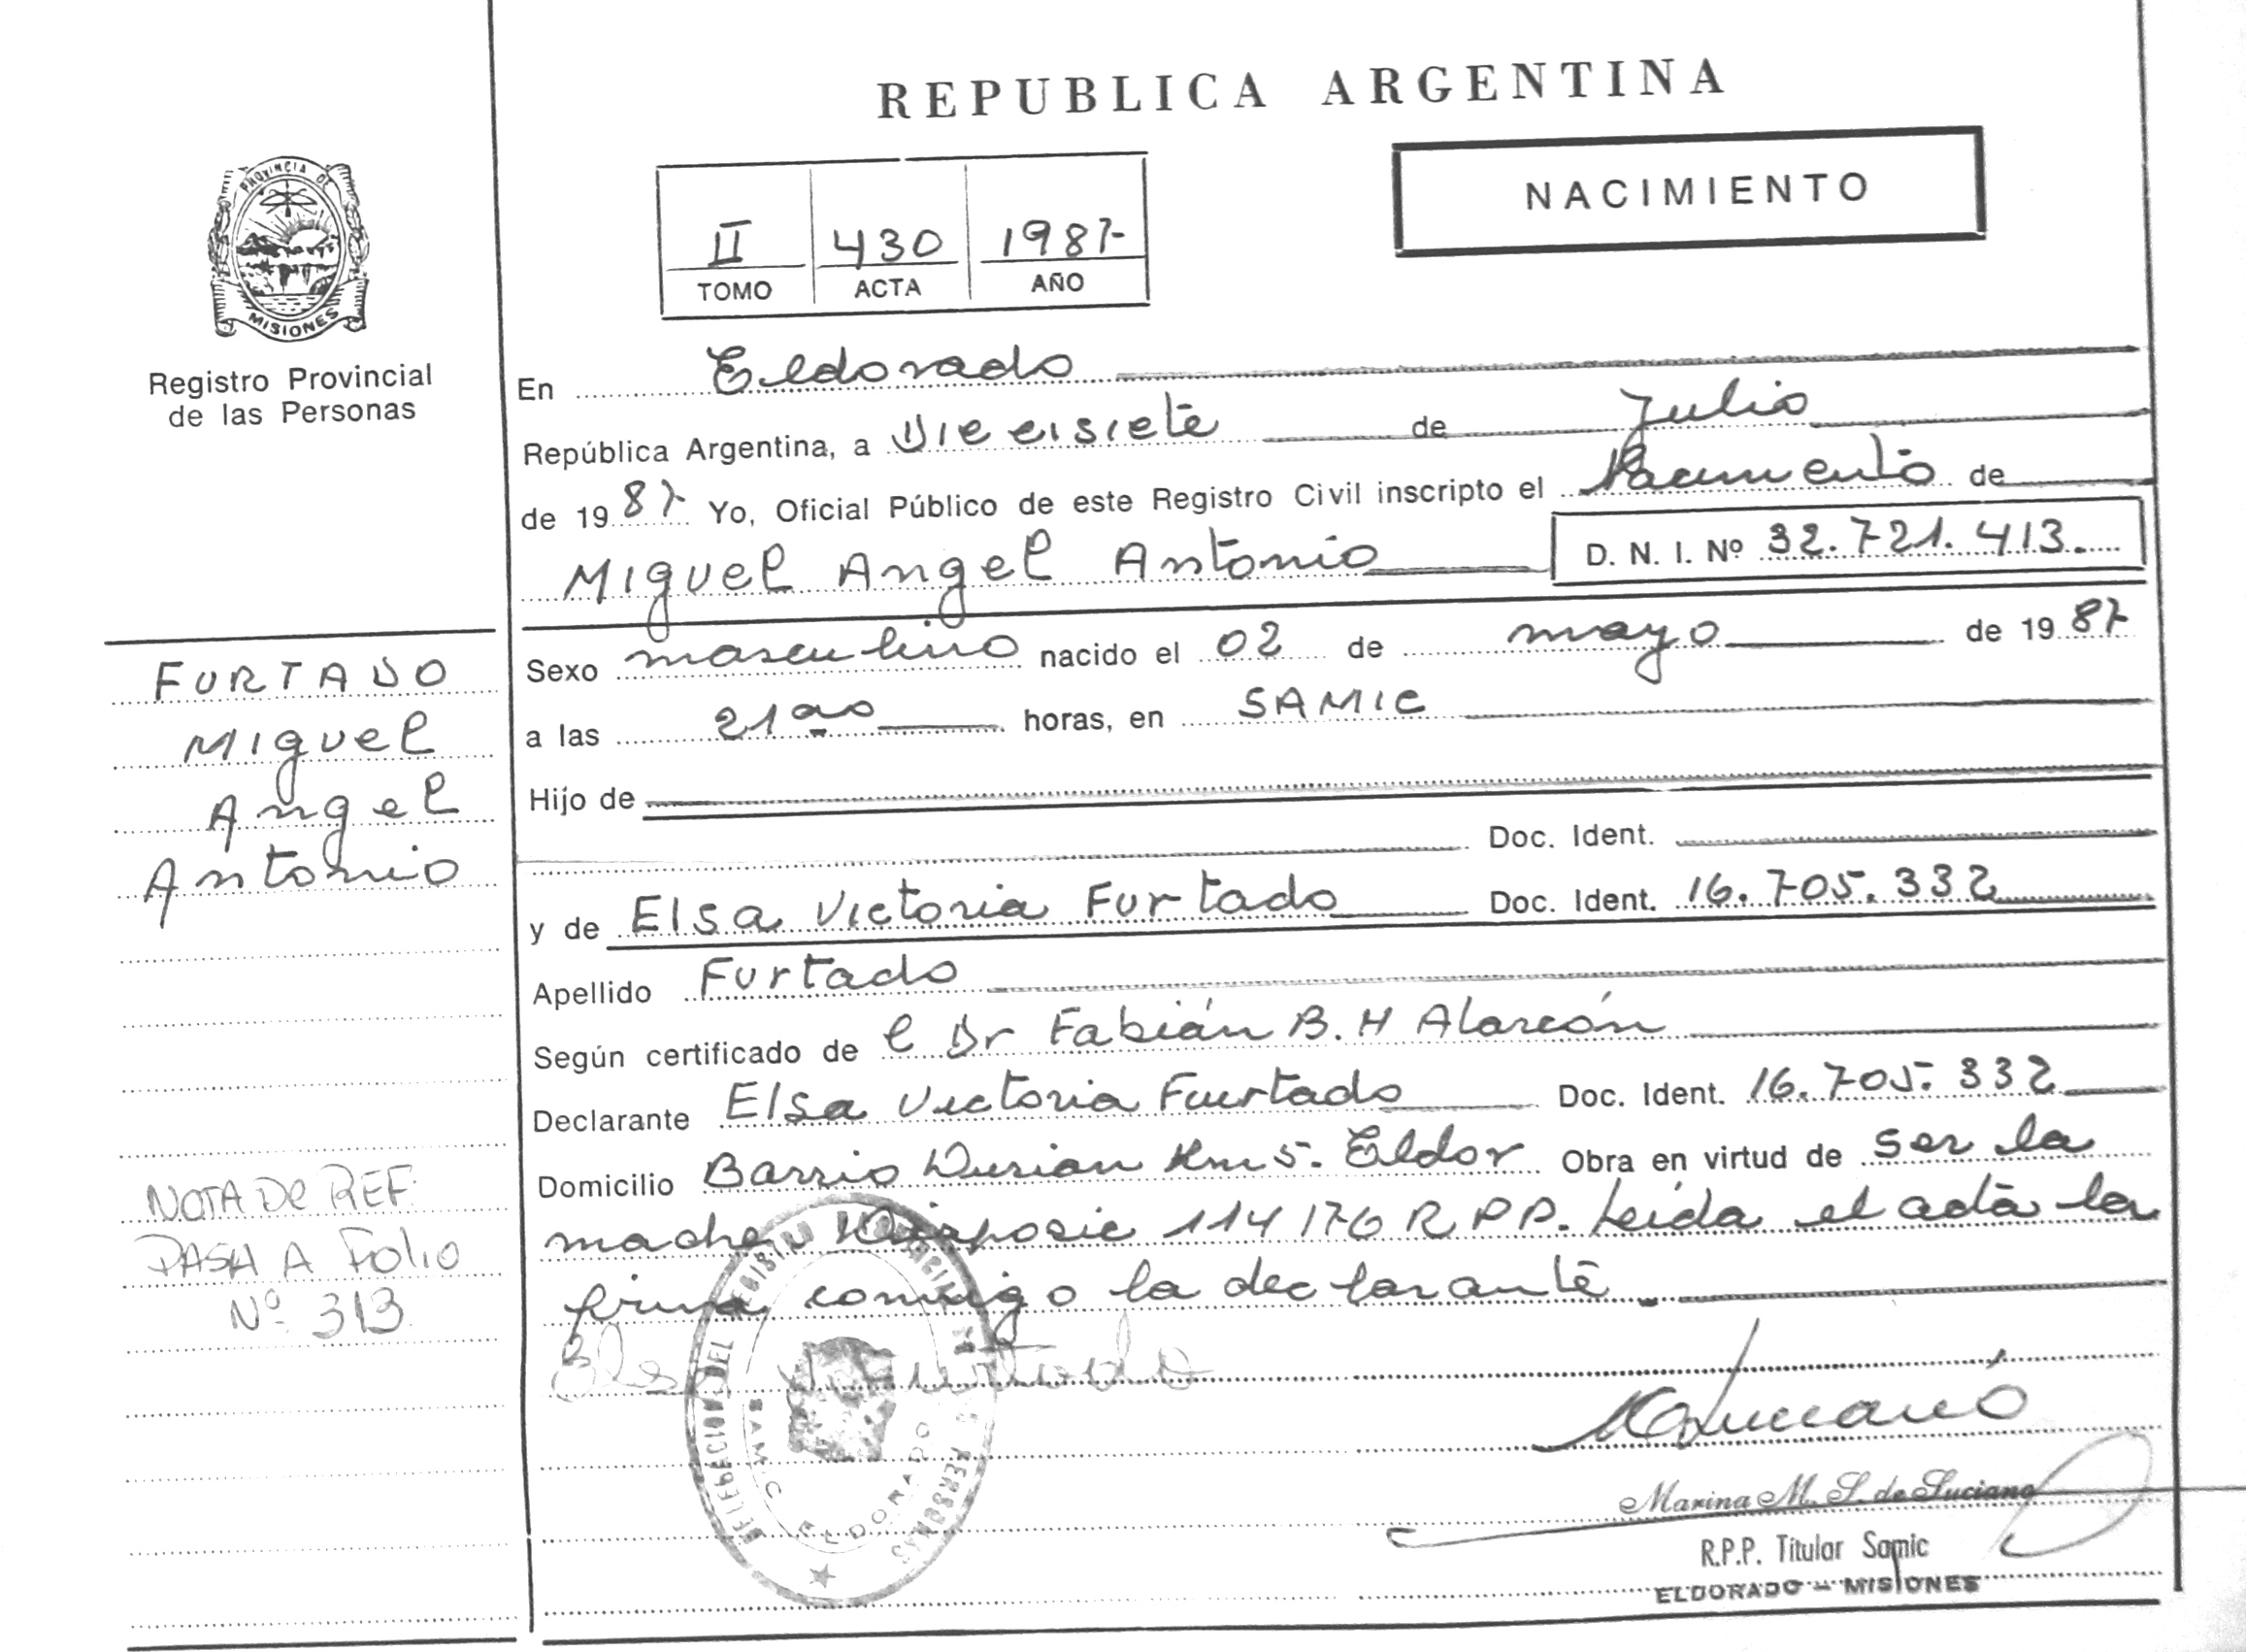 REPUBLICA ARGENTINA
NACIMIENTO
II 430 1987
TOMO ACTA AÑO
PROVINCIA DE
MISIONES
Registro Provincial
de las Personas
En Eldorado
República Argentina, a Dieeisiete de Julio
de 1987 Yo, Oficial Público de este Registro Civil inscripto el Nacimiento de
Miguel Angel Antonio D. N. I. Nº 32.721.413.
Sexo masculino nacido el 02 de mayo de 1987
a las 21 horas, en SAMIC
Hijo de
Doc. Ident.
y de Elsa Victoria Furtado Doc. Ident. 16.705.332
Apellido Furtado
Según certificado del Dr Fabián B. H Alarcón
Declarante Elsa Victoria Furtado Doc. Ident. 16.705.332
Domicilio Barrio Km 5. Eldor Obra en virtud de ser la
madre 114 176 R P P. Leída el acta la
firma conmigo la declarante
Furtado
Marina M. S. de Luciano
R.P.P. Titular Samic
ELDORADO - MISIONES
DELEGACION DEL REGISTRO PROVINCIAL DE PERSONAS
SAMIC ELDORADO
FURTADO
Miguel
Angel
Antonio
NOTA DE REF.
PASA A FOLIO
Nº 313